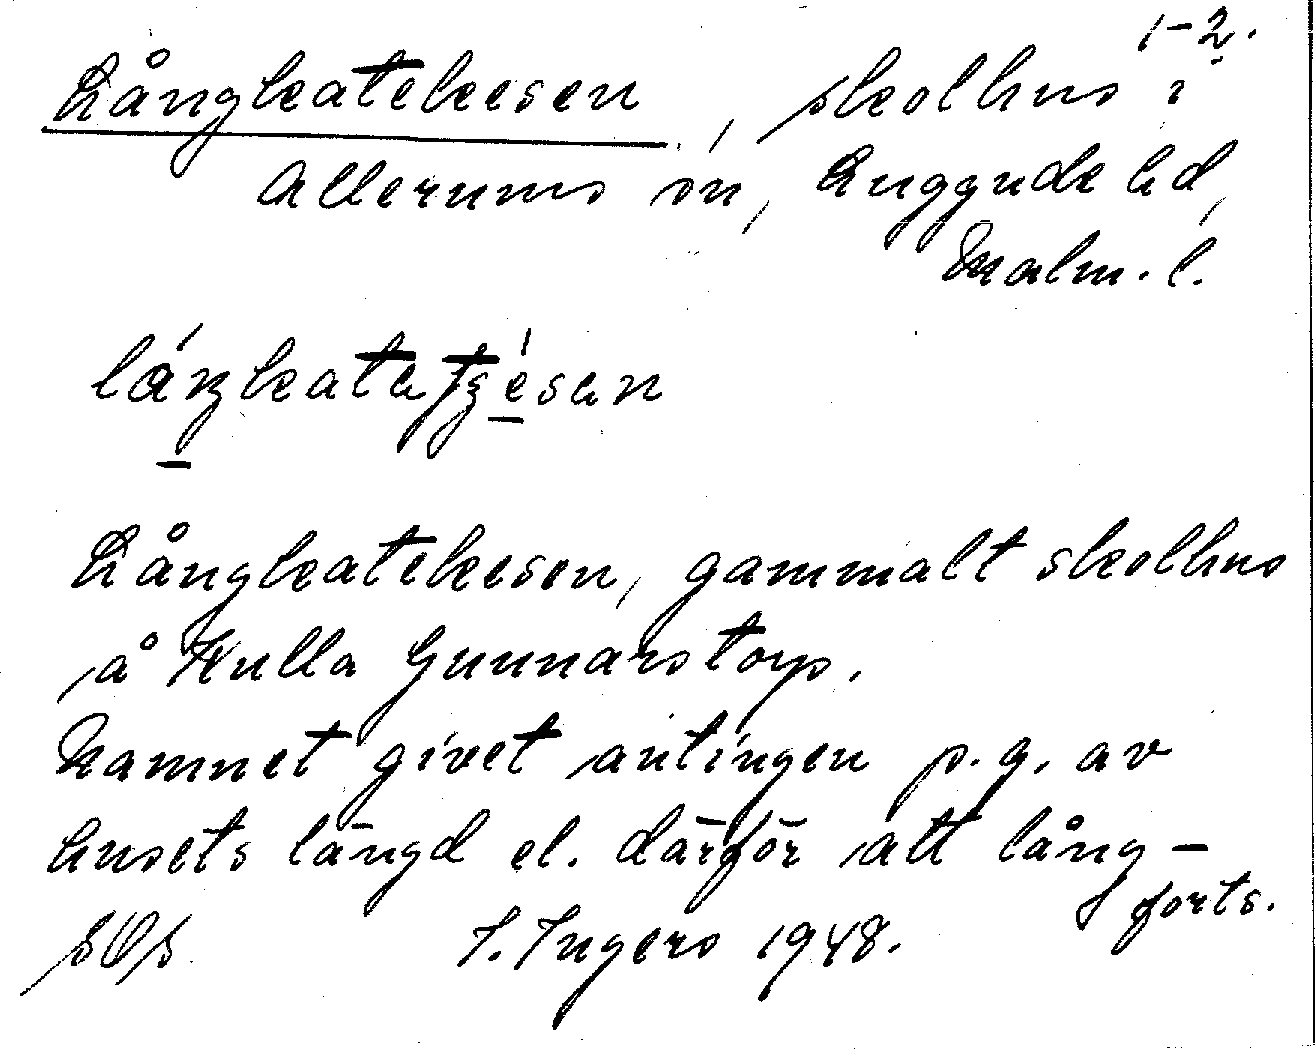 1-2.
Långkatekesen, skolhus i
Allerums sn, Luggude hd,
Malm. l.
Långkatekesen, gammalt skolhus
på Kulla Gunnarstorp.
Namnet givet antingen p.g. av
husets längd el. därför att lång-
forts.
SOS I. Ingers 1948.